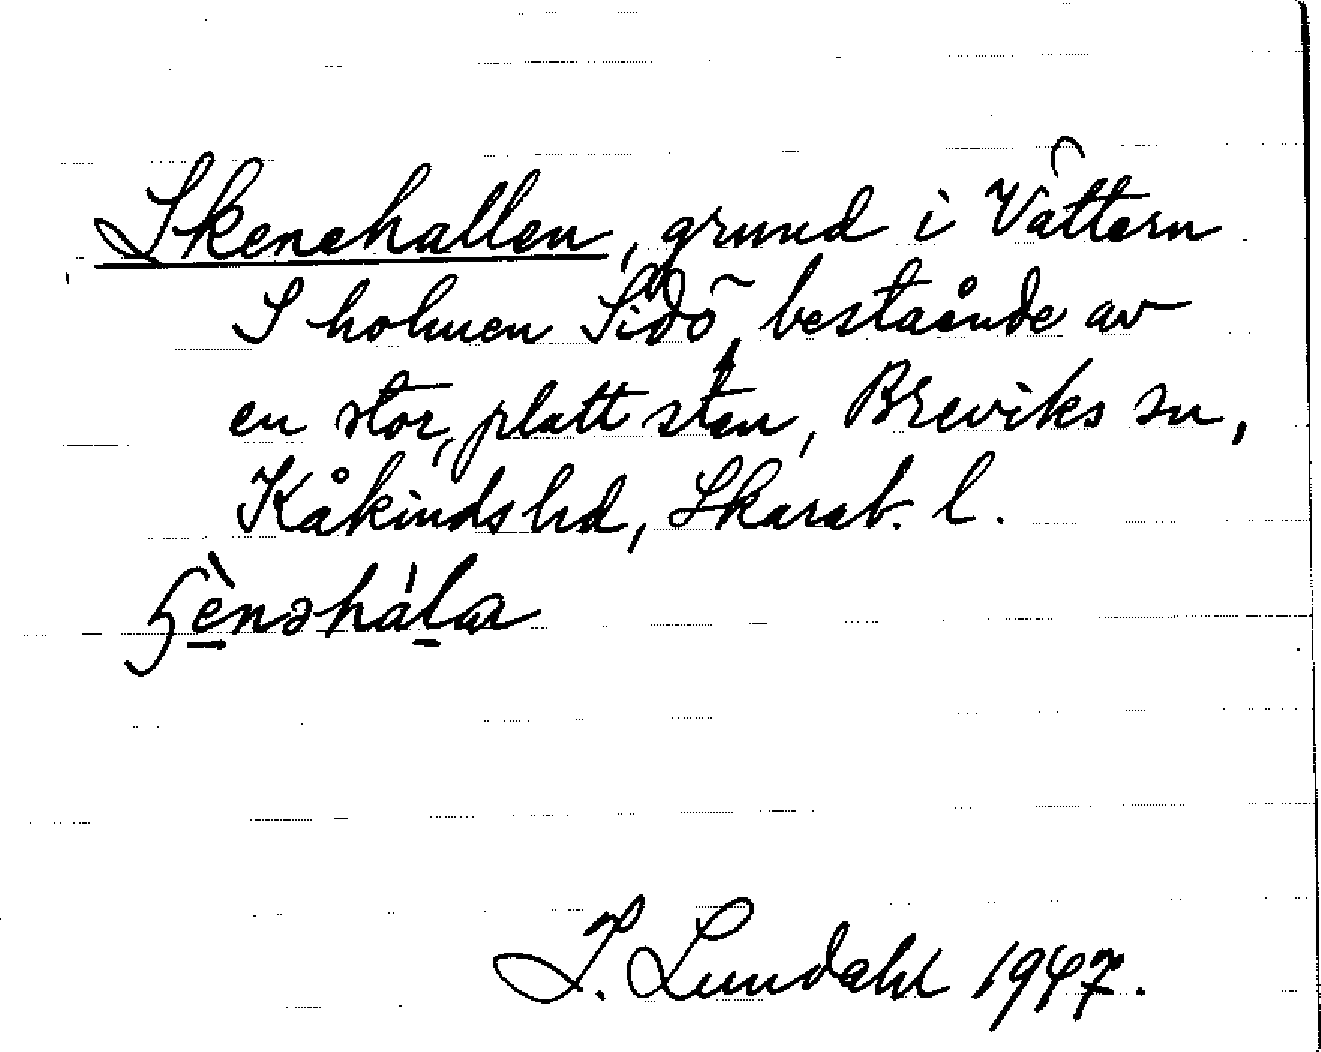 Skenehallen, grund i Vättern
S holmen Sidö, bestående av
en stor, platt sten, Breviks sn,
Kåkinds hd, Skarab. l.
I. Lundahl 1947.